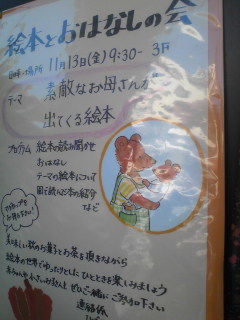 絵本とおはなしの会
日時・場所 11月13日(金) 9:30- 3F
テーマ 素敵なお母さんが
出てくる絵本
プログラム 絵本の読み聞かせ
おはなし
テーマの絵本について
など
美味しい秋のお菓子とお茶を頂きながら
絵本の世界でゆったりとしたひとときを楽しみましょう
ぜひご一緒にご参加下さい